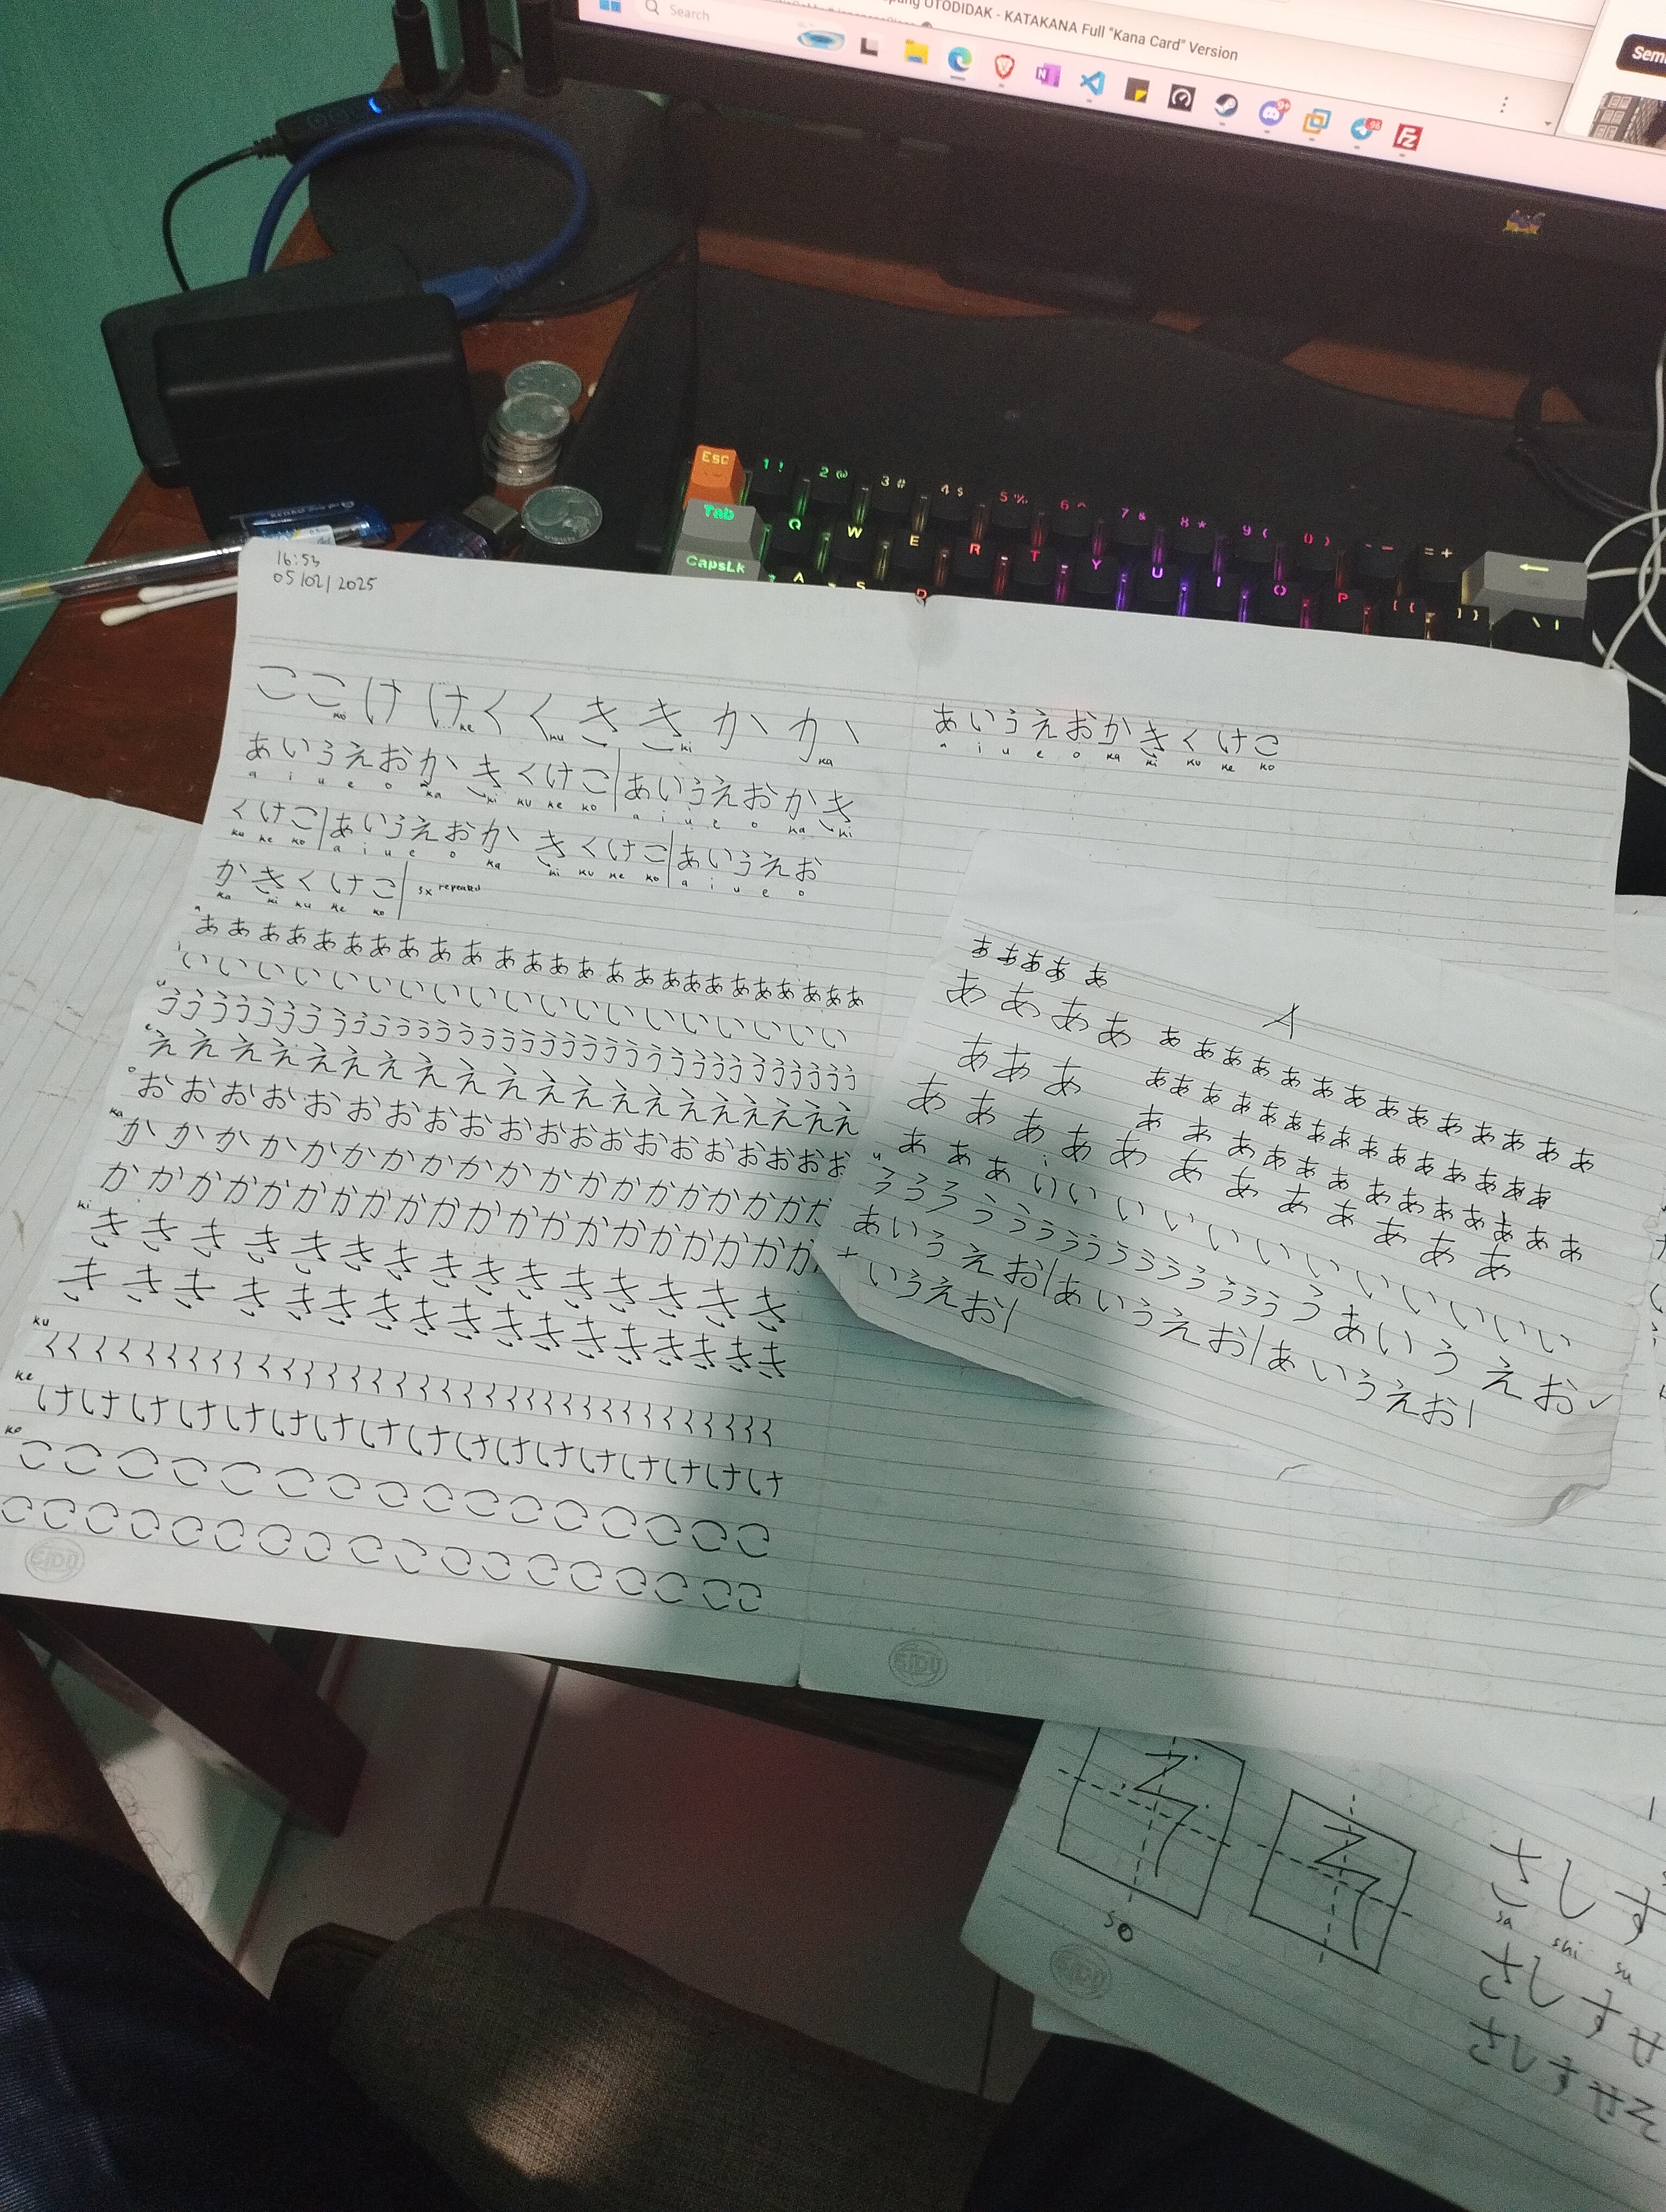 Search
OTODIDAK - KATAKANA Full "Kana Card" Version
Esc 1 ! 2 @ 3 # 4 $ 5 % 6 ^ 7 & 8 * 9 ( 0 ) - = +
Tab Q W E R T Y U I O P [ { ] }
CapsLk A S D
16:53
05/02/2025
こ こ け け く く き き か か
ko ke ku ki ka
あ い う え お か き く け こ | あ い う え お か き
a i u e o ka ki ku ke ko a i u e o ka ki
く け こ | あ い う え お か き く け こ | あ い う え お
ku ke ko a i u e o ka ki ku ke ko a i u e o
か き く け こ | 3x repeated
ka ki ku ke ko
a
あ あ あ あ あ あ あ あ あ あ あ あ あ あ あ あ あ あ あ あ あ あ あ あ あ
i
い い い い い い い い い い い い い い い い い い い
u
う う う う う う う う う う う う う う う う う う う う う う う う う う う う う
e
え え え え え え え え え え え え え え え え え え え
o
お お お お お お お お お お お お お お お お お お お お
ka
か か か か か か か か か か か か か か か か か か か
か か か か か か か か か か か か か か か か か か か
ki
き き き き き き き き き き き き き き き
き き き き き き き き き き き き き き き き
ku
く く く く く く く く く く く く く く く く く く く く く く く く く く く く く
ke
け け け け け け け け け け け け け け け け
ko
こ こ こ こ こ こ こ こ こ こ こ こ こ こ こ
こ こ こ こ こ こ こ こ こ こ こ こ こ こ こ こ こ
SIDU
あ い う え お か き く け こ
a i u e o ka ki ku ke ko
あ あ あ あ あ
A
あ あ あ あ あ あ あ あ あ あ あ あ あ あ あ あ あ あ
あ あ あ あ あ あ あ あ あ あ あ あ あ あ あ あ あ
あ あ あ あ あ あ あ あ あ あ あ
あ あ あ
i
い い い い い い い い い い い い
u
う う う う う う う う う う う う う う う う あ い う え お ✓
あ い う え お | あ い う え お | あ い う え お |
+ い う え お |
SIDU
そ そ
so
さ し す
sa shi su
さ し す せ
さ し す せ そ
SIDU